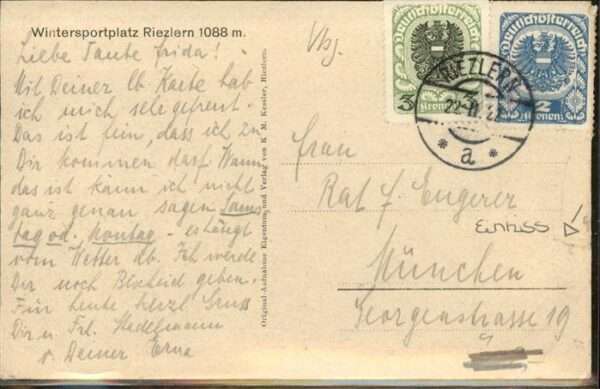 Wintersportplatz Riezlern 1088 m.
Liebe Tante Frida!
Mit Deiner lb. Karte hab
ich mich sehr gefreut.
Das ist fein, dass ich zu
Dir kommen darf. Wann
das ist kann ich nicht
ganz genau sagen Sams
tag od. Montag - es hängt
vom Wetter ab. Ich werde
Dir noch Bescheid geben.
Für heute herzl. Gruss
Dir u. Frl. Stadelmann
v. Deiner Erna
Original-Aufnahme Eigentum und Verlag von K. M. Kessler, Riezlern.
Deutschösterreich
3 Kronen 3
Deutschösterreich
2 Kronen
RIEZLERN
22.II.22
* a *
Frau
Rat F. Engerer
Einriss
München
Georgenstrasse 19